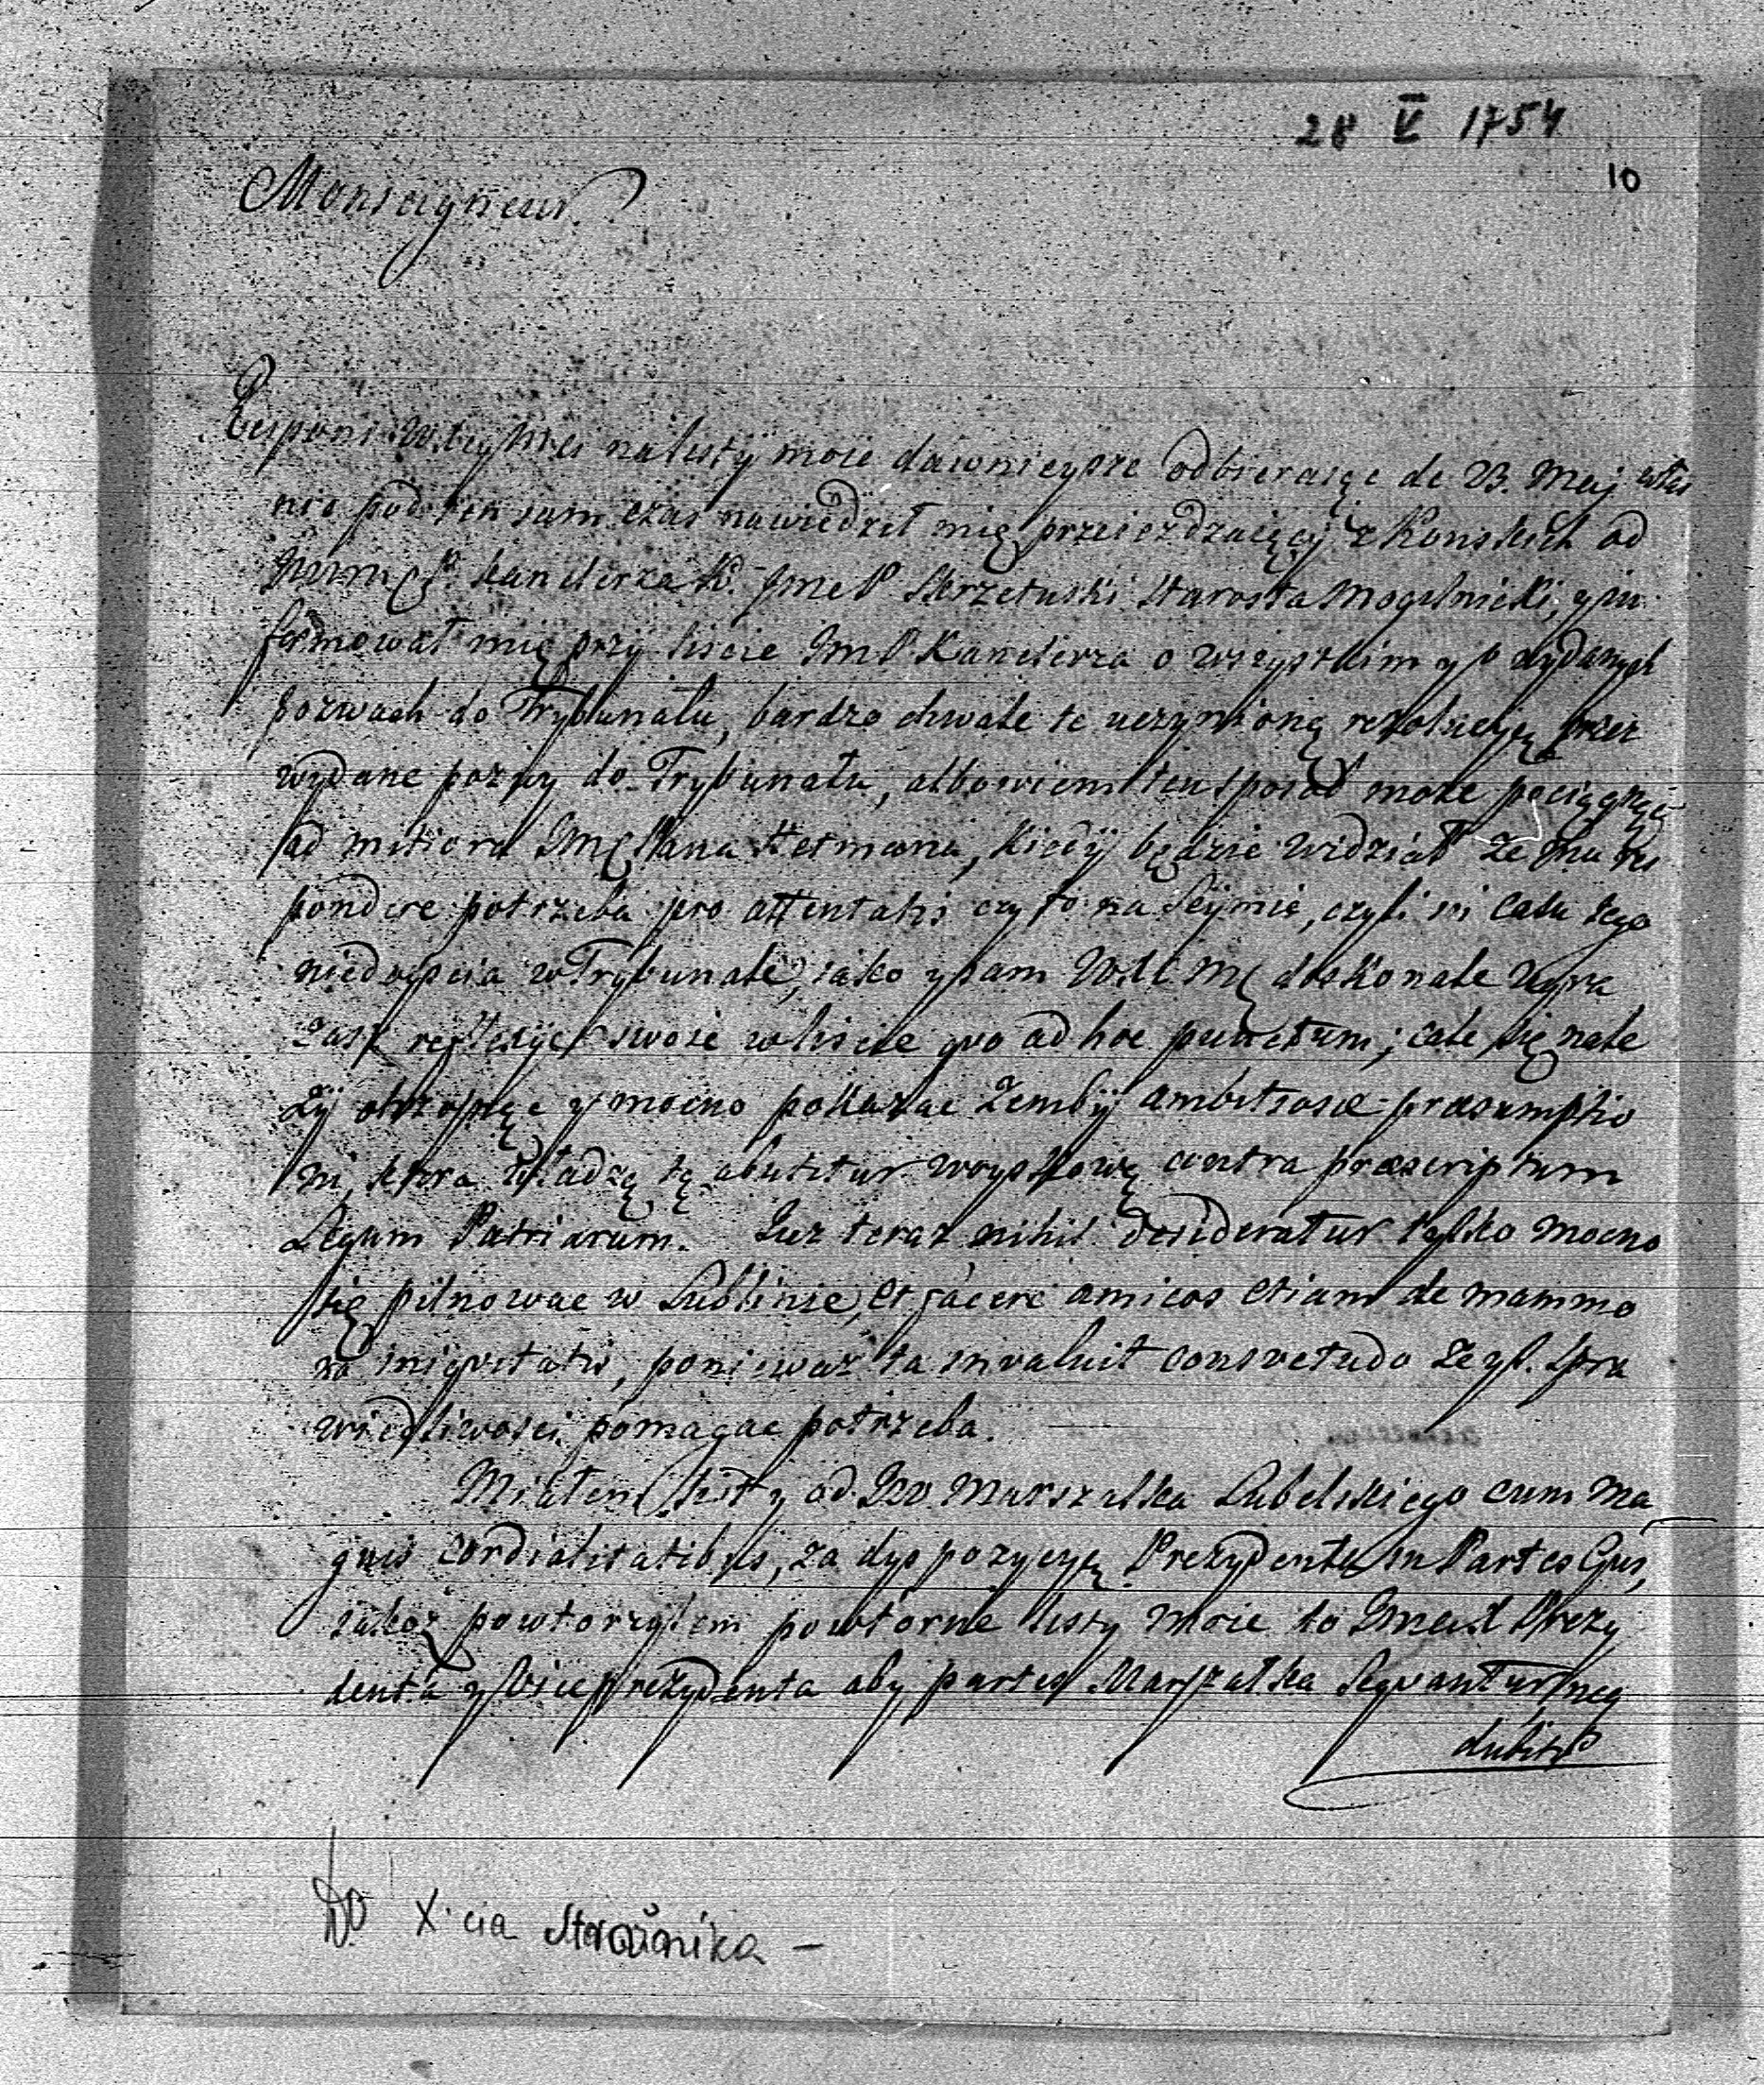 28 V 1754
10
Monseigneur
Respons WXcey Mci na listy moie dawnieysze odbieraiąc de 23. Maj właś
nie pod ten sam czas nawiedził mię przeieżdzaiący z Konskich od
Kanclerza K. Jme P Skrzetuski Starosta Mogilnicki, y in
formował mię przy liscie Jm P Kanclerza o wszystkim y o wydanych
pozwach do Trybunału, bardzo chwale te uczynioną rezolucyę przez
wydane pozwy do Trybunału, albowiem ten sposob może pociągnąć
ad mitiora Jmę Pana Hetmana, kiedy będzie widział że mu res
pondere potrzeba pro attentatis czy to na Seymie, czyli in casu tego
niedoyscia w Trybunale, iako y sam doskonale wyra
zasz reflexye swoie w liscie quo ad hoc punctum; cale się nale
ży y mocno pokazac Zemby ambitiosae praesumptio
ni, ktora władzą tą abutitur woyskową contra praescriptum
Legum Patriarum. Juz teraz nihil desideratur tylko mocno
się pilnowac w Lublinie, et facere amicos etiam de mammo
na iniqvitatis, poniewaz ta invaluit consvetudo że y S. Spra
wiedliwosci pomagac potrzeba.
Miałem listy od JW. Marszałka Lubelskiego cum ma
gnis cordialitatibus, za dyspozycyą Prezydenta in Partes Ejus,
iakoż powtorzyłem powtorne listy moie do Prezy
denta y Viceprezydenta aby partes Marszałka seqvantur, neq
dubito
Do X·cia Strażnika –